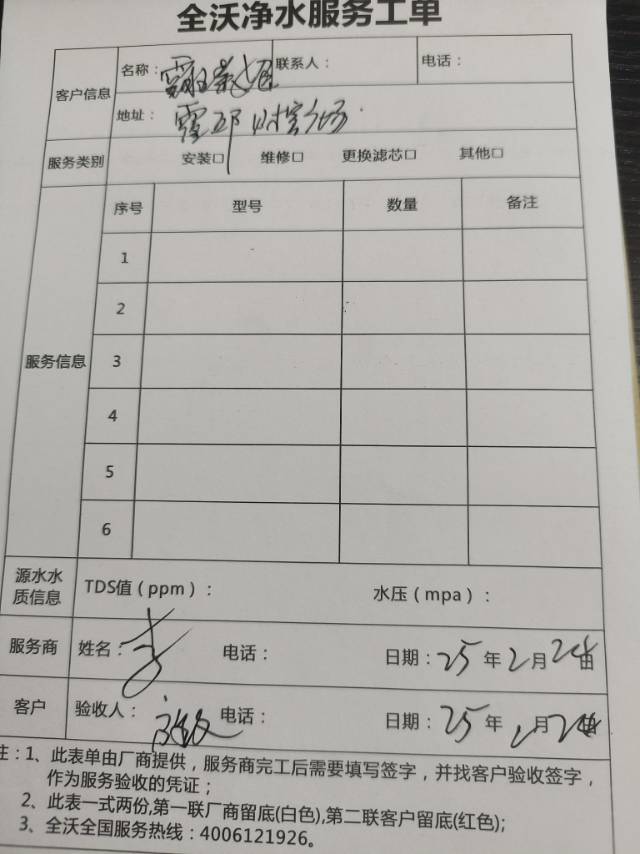 全沃净水服务工单
客户信息
名称： 联系人： 电话：
地址：霍邱
服务类别 安装□ 维修□ 更换滤芯□ 其他□
服务信息
序号 型号 数量 备注
1
2
3
4
5
6
源水水质信息 TDS值（ppm）： 水压（mpa）：
服务商 姓名：李 电话： 日期：25年2月24日
客户 验收人： 电话： 日期：25年2月24日
注：1、此表单由厂商提供，服务商完工后需要填写签字，并找客户验收签字，
作为服务验收的凭证；
2、此表一式两份,第一联厂商留底(白色),第二联客户留底(红色);
3、全沃全国服务热线：4006121926。